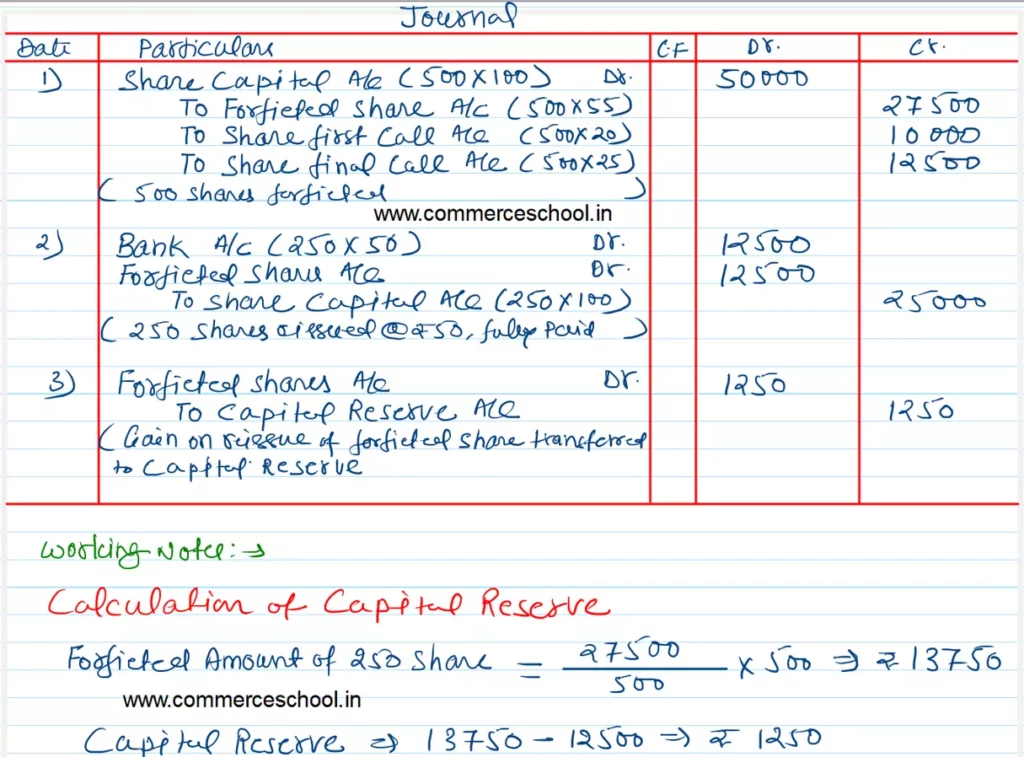 Journal
Date Particulars C.F Dr. Cr.
1) Share Capital A/c (500X100) Dr. 50000
To Forfieted Share A/c (500X55) 27500
To Share first Call A/c (500X20) 10000
To Share final Call A/c (500X25) 12500
( 500 Shares forfieted )
www.commerceschool.in
2) Bank A/c (250X50) Dr. 12500
Forfieted Share A/c Dr. 12500
To Share Capital A/c (250X100) 25000
( 250 Shares reissued @ ₹50, fully Paid )
3) Forfieted Shares A/c Dr. 1250
To Capital Reserve A/c 1250
( Gain on reissue of forfieted Share transferred
to Capital Reserve
Working Note:→
Calculation of Capital Reserve
Forfieted Amount of 250 Share = 27500/500 X 500 ⇒ ₹13750
www.commerceschool.in
Capital Reserve ⇒ 13750 - 12500 ⇒ ₹ 1250